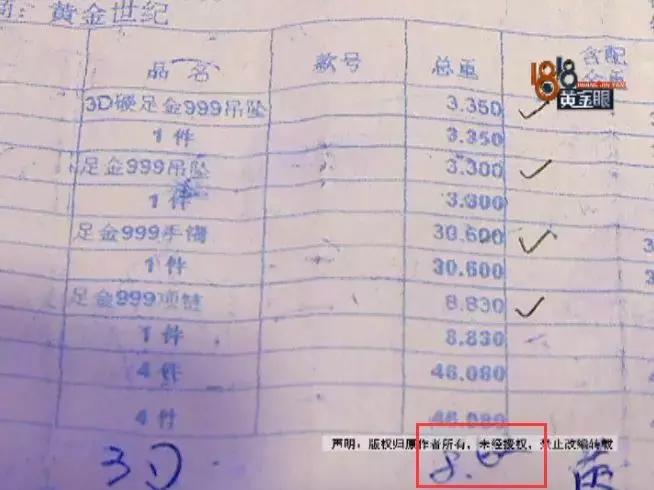 商：黄金世纪
品名 款号 总重 含配
金重
3D硬足金999吊坠 3.350
1件 3.350
足金999吊坠 3.300
1件 3.300
足金999手镯 30.600
1件 30.600
足金999项链 8.830
1件 8.830
4件 46.080
4件 46.080
3D
1818
黄金眼
声明：版权归原作者所有，未经授权，禁止改编转载